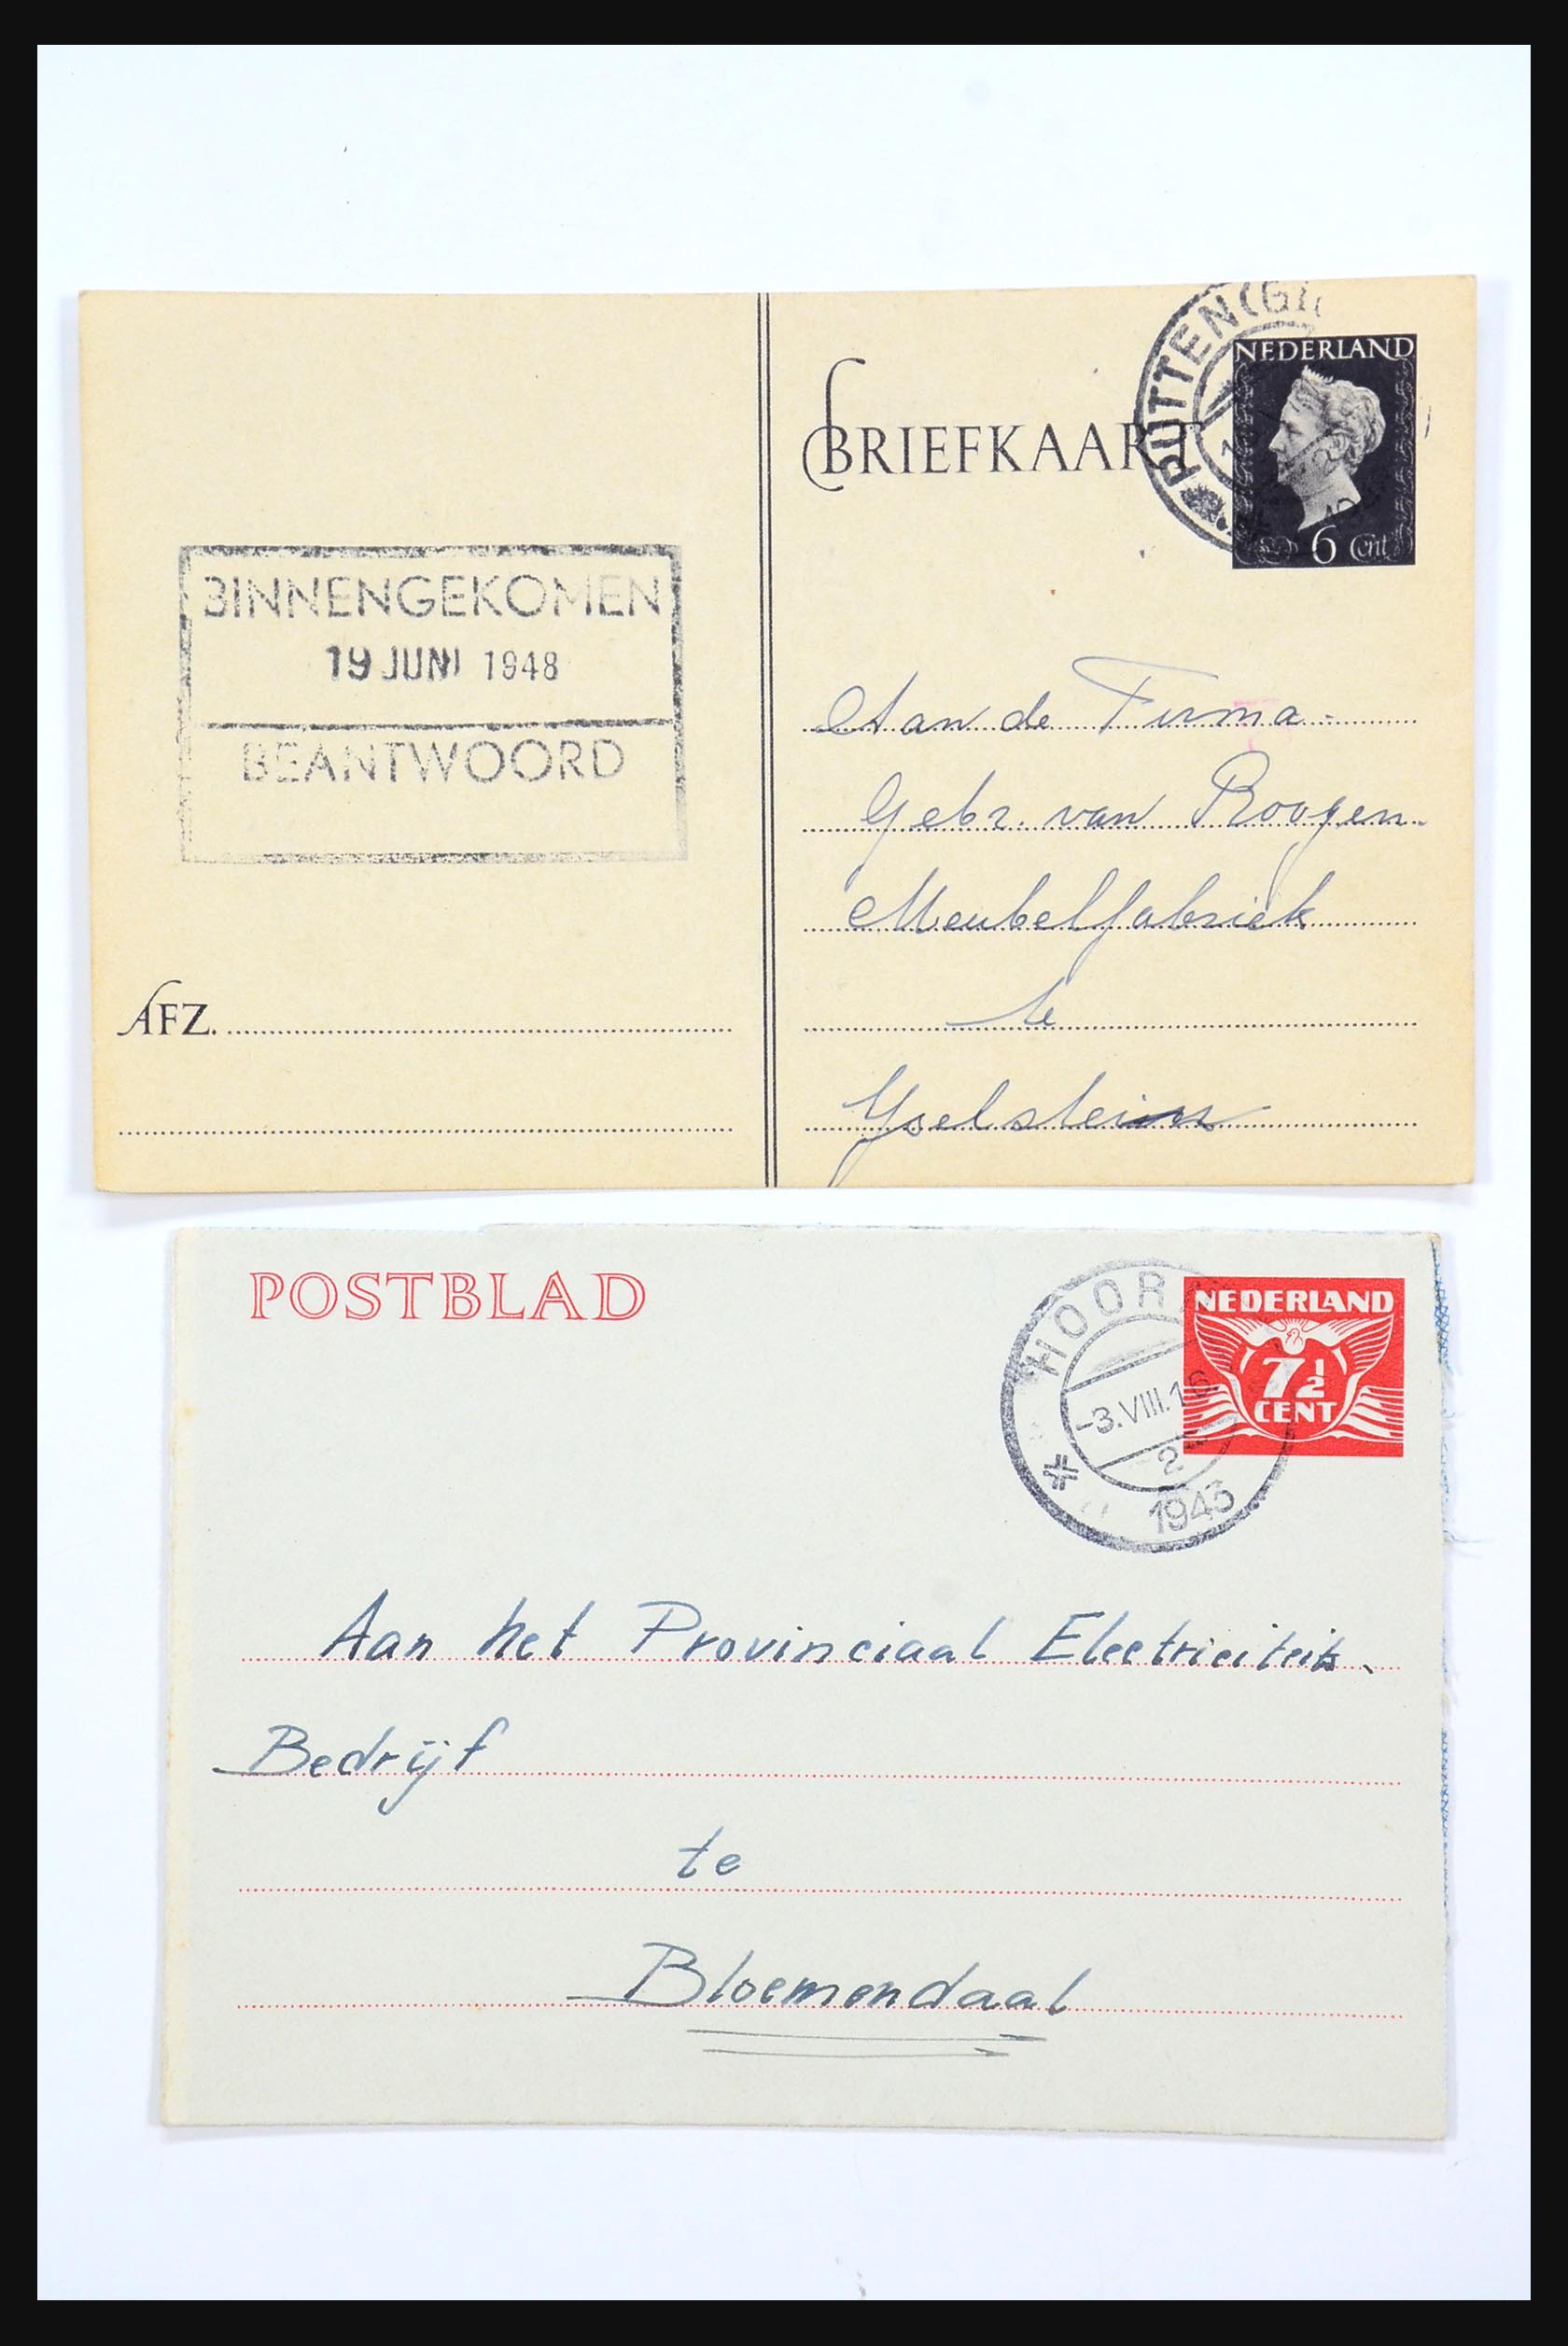 BRIEFKAART
PUTTEN (GL
NEDERLAND
6 Cent
BINNENGEKOMEN
19 JUNI 1948
BEANTWOORD
AFZ.
Aan de Firma
Gebr. van Rooyen.
Meubelfabriek
te
Yselstein
POSTBLAD
HOORN
-3.VIII.16
2
1943
NEDERLAND
7½
CENT
Aan het Provinciaal Electriciteits
Bedrijf
te
Bloemendaal